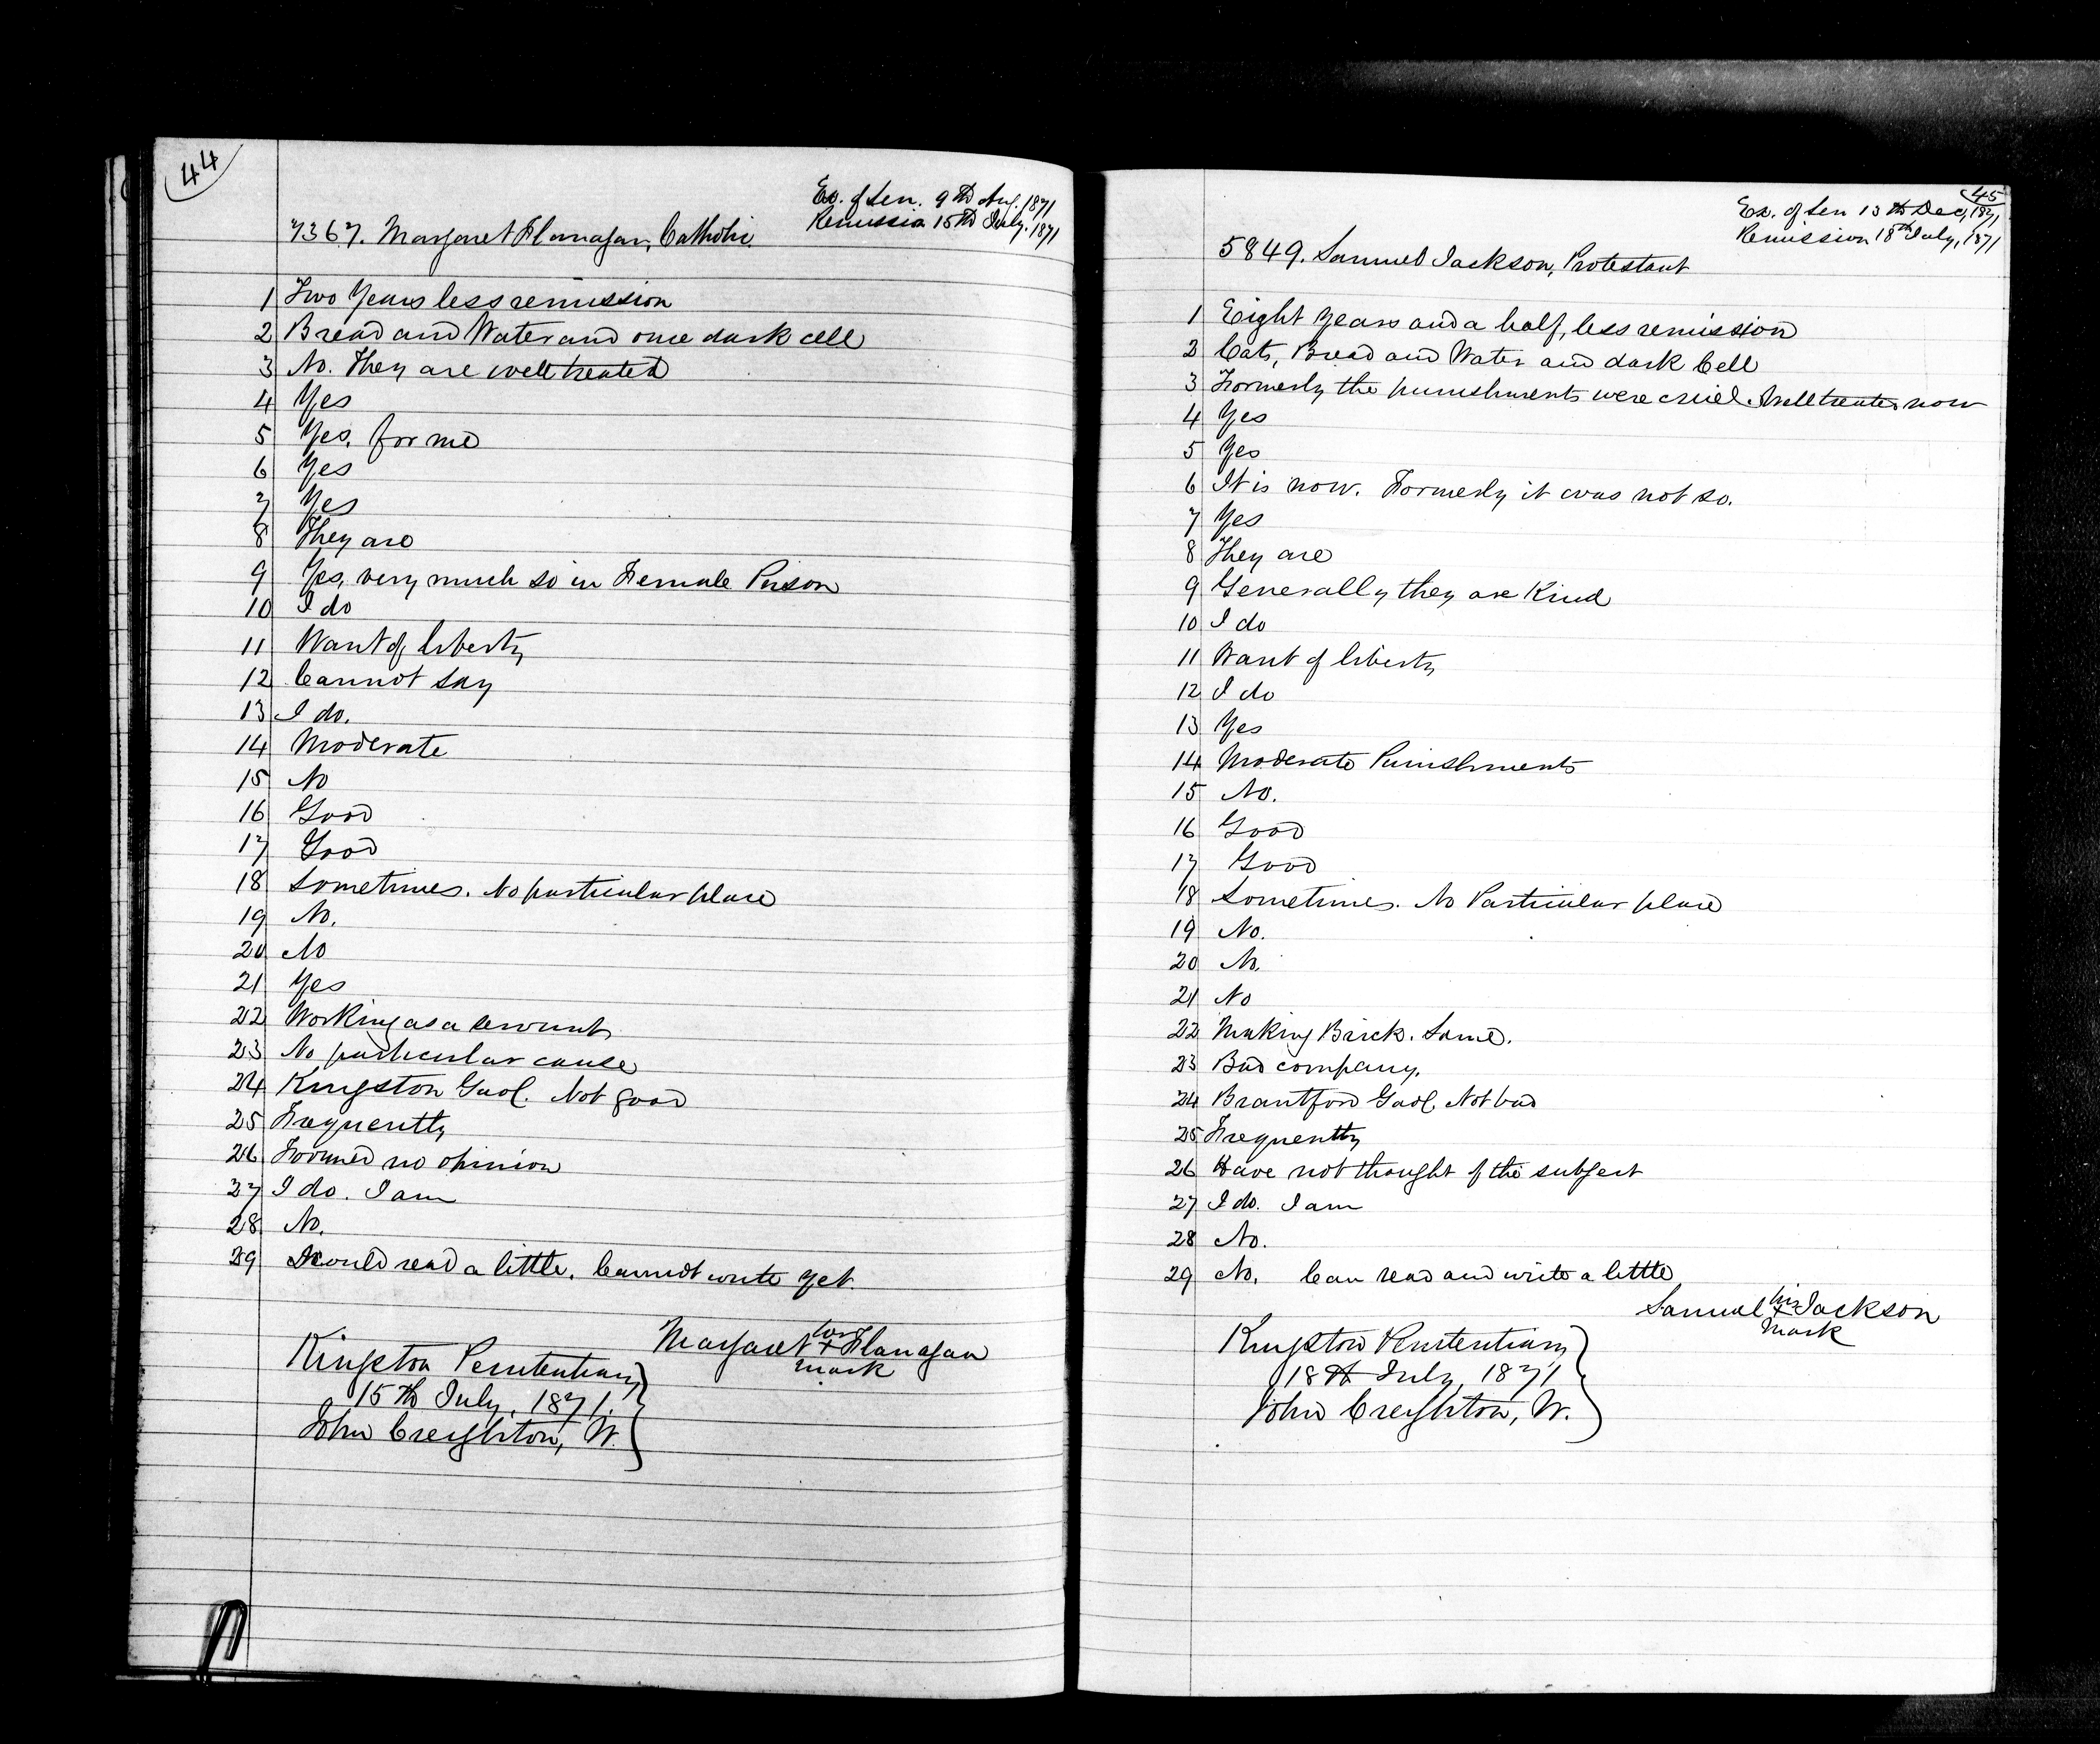 44
Ex. of Sen. 9th Aug. 1871
Remission 15th July. 1871
7367. Margaret Flanagan, Catholic
1 Two Years less remission
2 Bread and Water and once dark cell
3 No. They are well treated
4 Yes
5 Yes, for me
6 Yes
7 Yes
8 They are
9 Yes, very much so in Female Prison
10 I do
11 Want of liberty
12 Cannot say
13 I do.
14 Moderate
15 No
16 Good
17 Good
18 Sometimes. No particular place
19 No.
20 No
21 Yes
22 Working as a servant
23 No particular cause
24 Kingston Gaol. Not good
25 Frequently
26 Formed no opinion
27 I do. I am
28 No.
29 I could read a little. Cannot write yet.
Margaret her + mark Flanagan
Kingston Penitentiary
15th July, 1871.
John Creighton, W.
45
Ex. of Sen 13th Dec, 1871
Remission 18th July, 1871
5849. Samuel Jackson, Protestant
1 Eight Years and a half, less remission
2 Cats, Bread and Water and dark Cell
3 Formerly the punishments were cruel. Well treated now
4 Yes
5 Yes
6 It is now. Formerly it was not so.
7 Yes
8 They are
9 Generally they are Kind
10 I do
11 Want of liberty
12 I do
13 Yes
14 Moderate Punishments
15 No.
16 Good
17 Good
18 Sometimes. No Particular place
19 No.
20 No.
21 No
22 Making Brick. Same.
23 Bad company.
24 Brantford Gaol. Not bad
25 Frequently
26 Have not thought of the subject
27 I do. I am
28 No.
29 No. Can read and write a little
Samuel his + mark Jackson
Kingston Penitentiary
18th July, 1871
John Creighton, W.